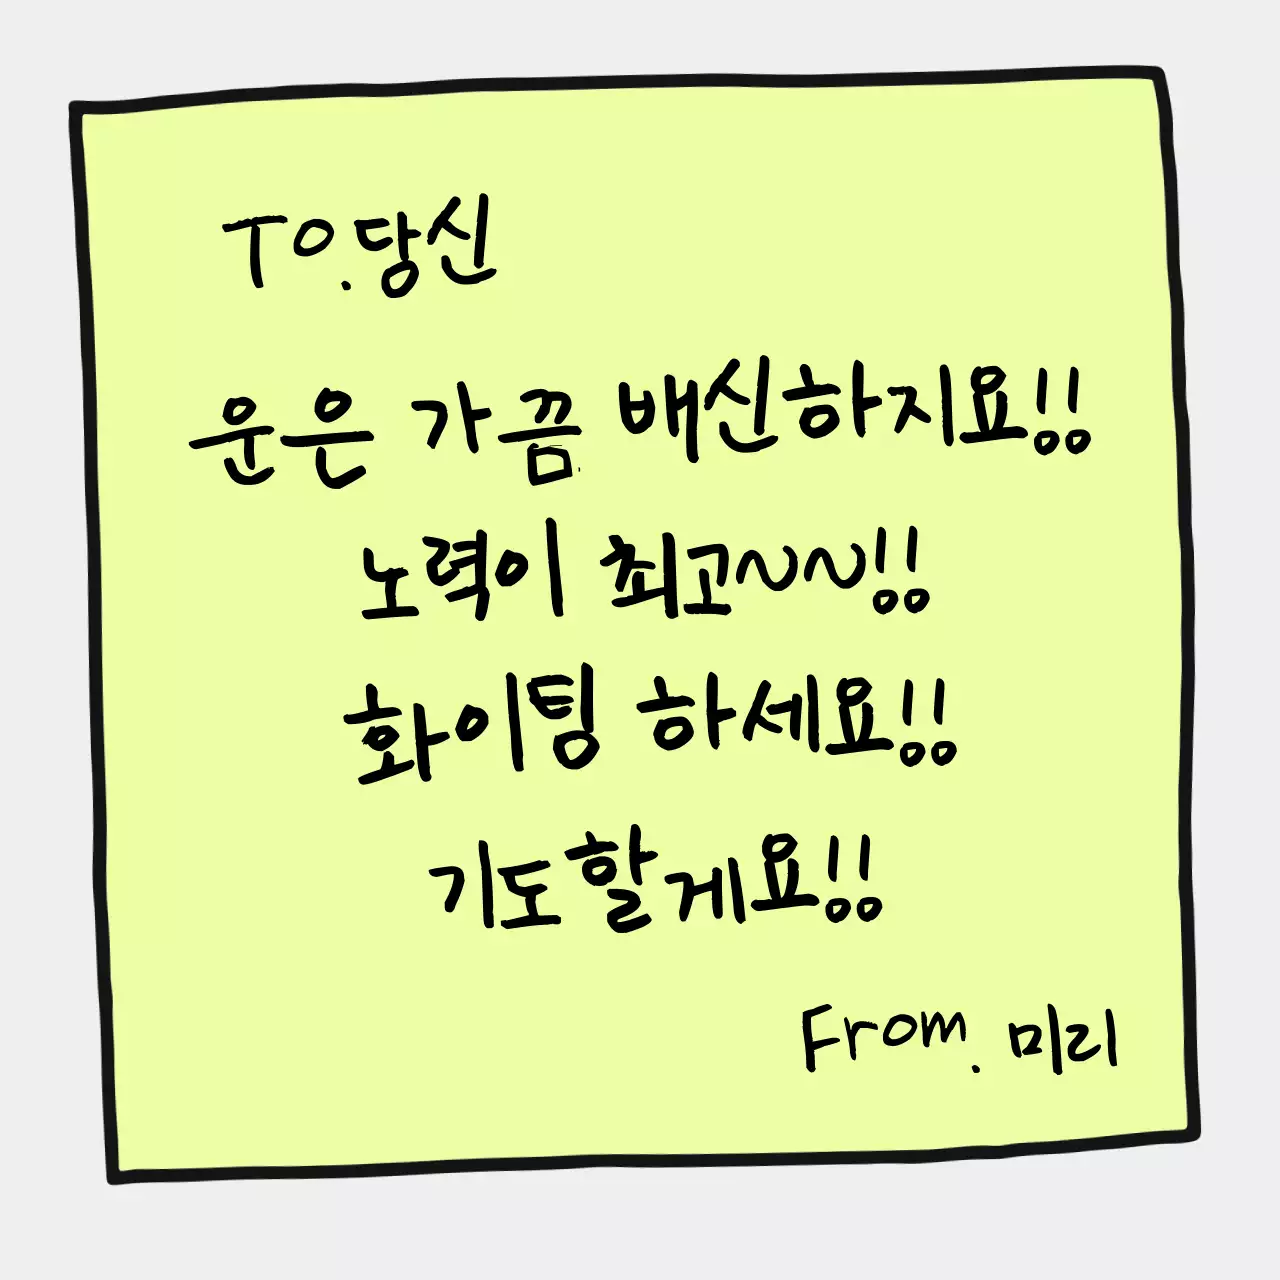 TO.당신
운은 가끔 배신하지요!!
노력이 최고~~!!
화이팅 하세요!!
기도할게요!!
From. 미리